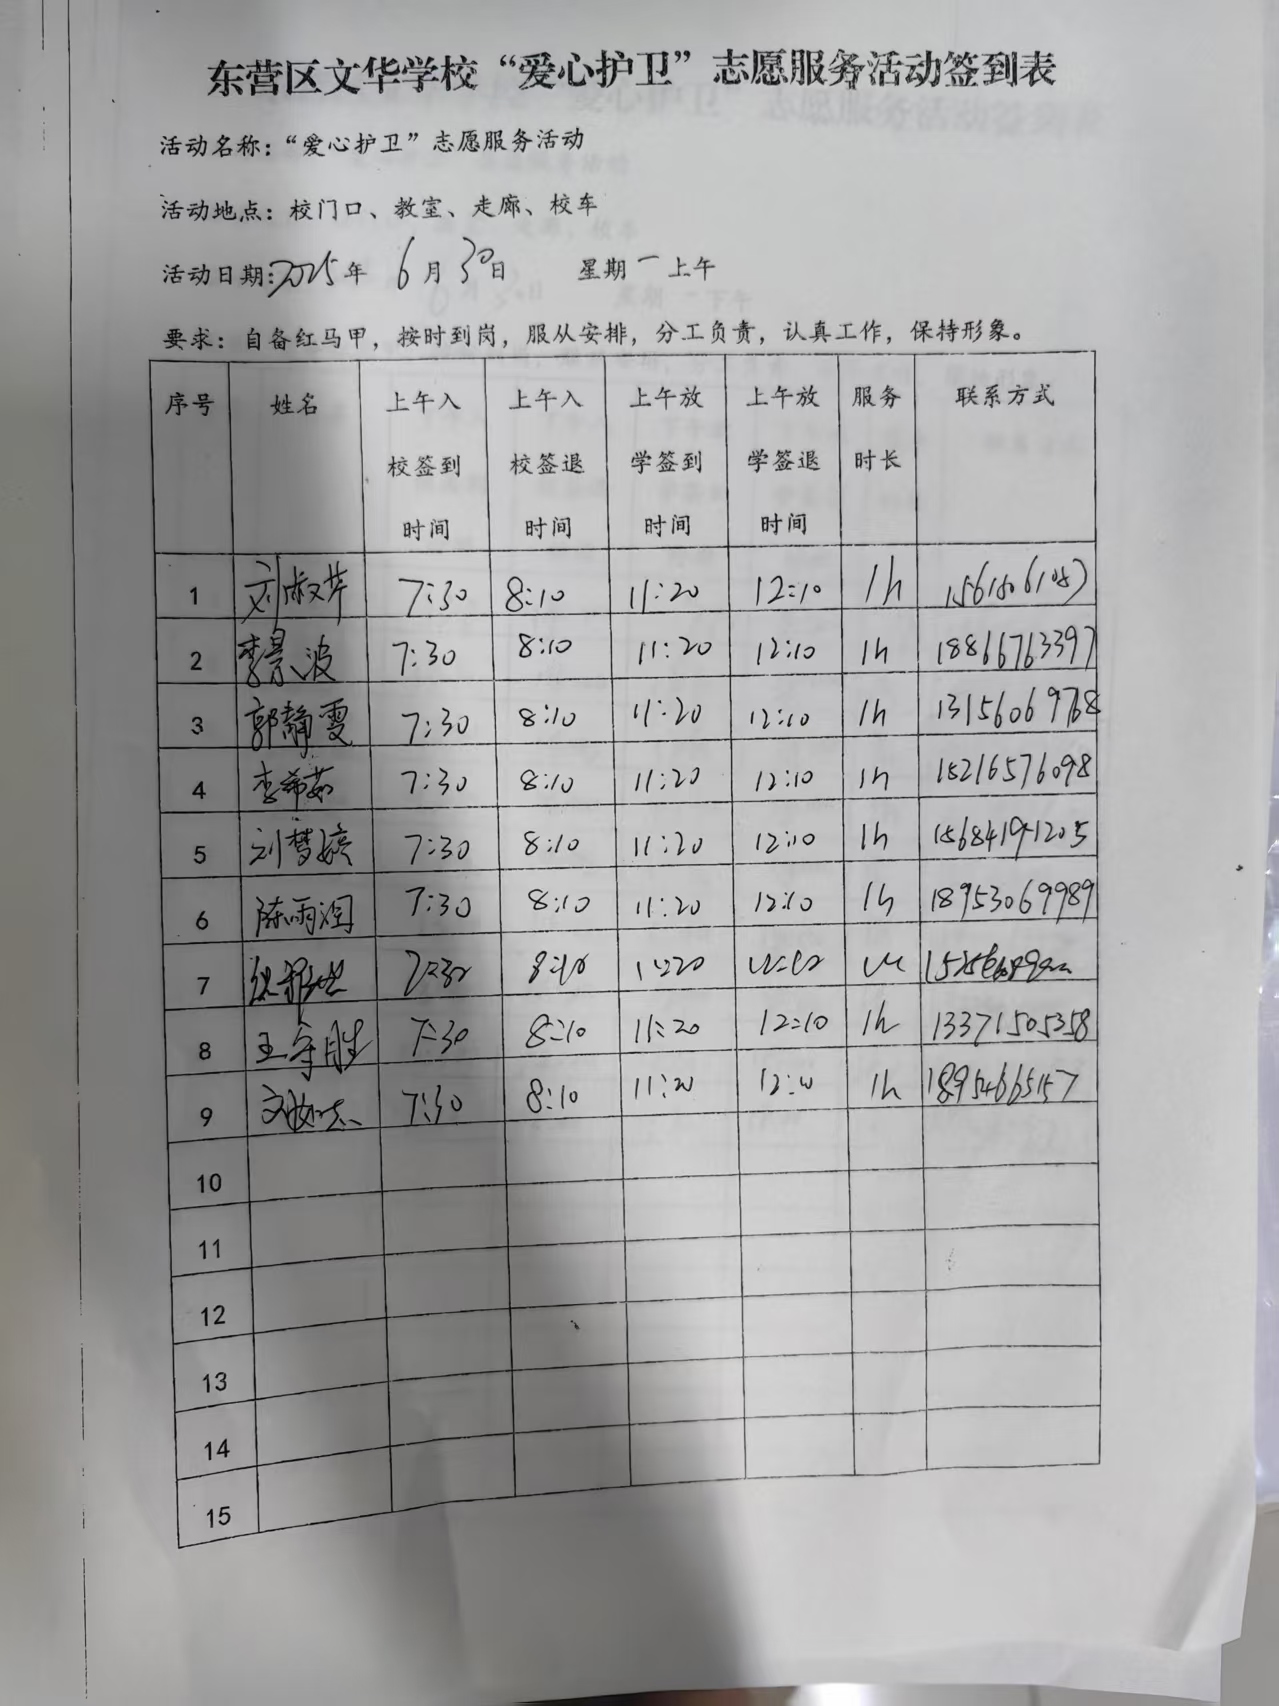 东营区文华学校“爱心护卫”志愿服务活动签到表
活动名称：“爱心护卫”志愿服务活动
活动地点：校门口、教室、走廊、校车
活动日期：2025年 6月30日 星期一上午
要求：自备红马甲，按时到岗，服从安排，分工负责，认真工作，保持形象。
序号 姓名 上午入校签到时间 上午入校签退时间 上午放学签到时间 上午放学签退时间 服务时长 联系方式
1 刘淑芹 7:30 8:10 11:20 12:10 1h
2 李景波 7:30 8:10 11:20 12:10 1h 18866763397
3 郭静雯 7:30 8:10 11:20 12:10 1h 13156069768
4 李希茹 7:30 8:10 11:20 12:10 1h 15216576098
5 刘梦婷 7:30 8:10 11:20 12:10 1h 15684191205
6 陈雨润 7:30 8:10 11:20 12:10 1h 18953069989
7 7:30 8:10 11:20 12:10 1h
8 王守胜 7:30 8:10 11:20 12:10 1h 13371505358
9 7:30 8:10 11:20 12:10 1h 18954665157
10
11
12
13
14
15